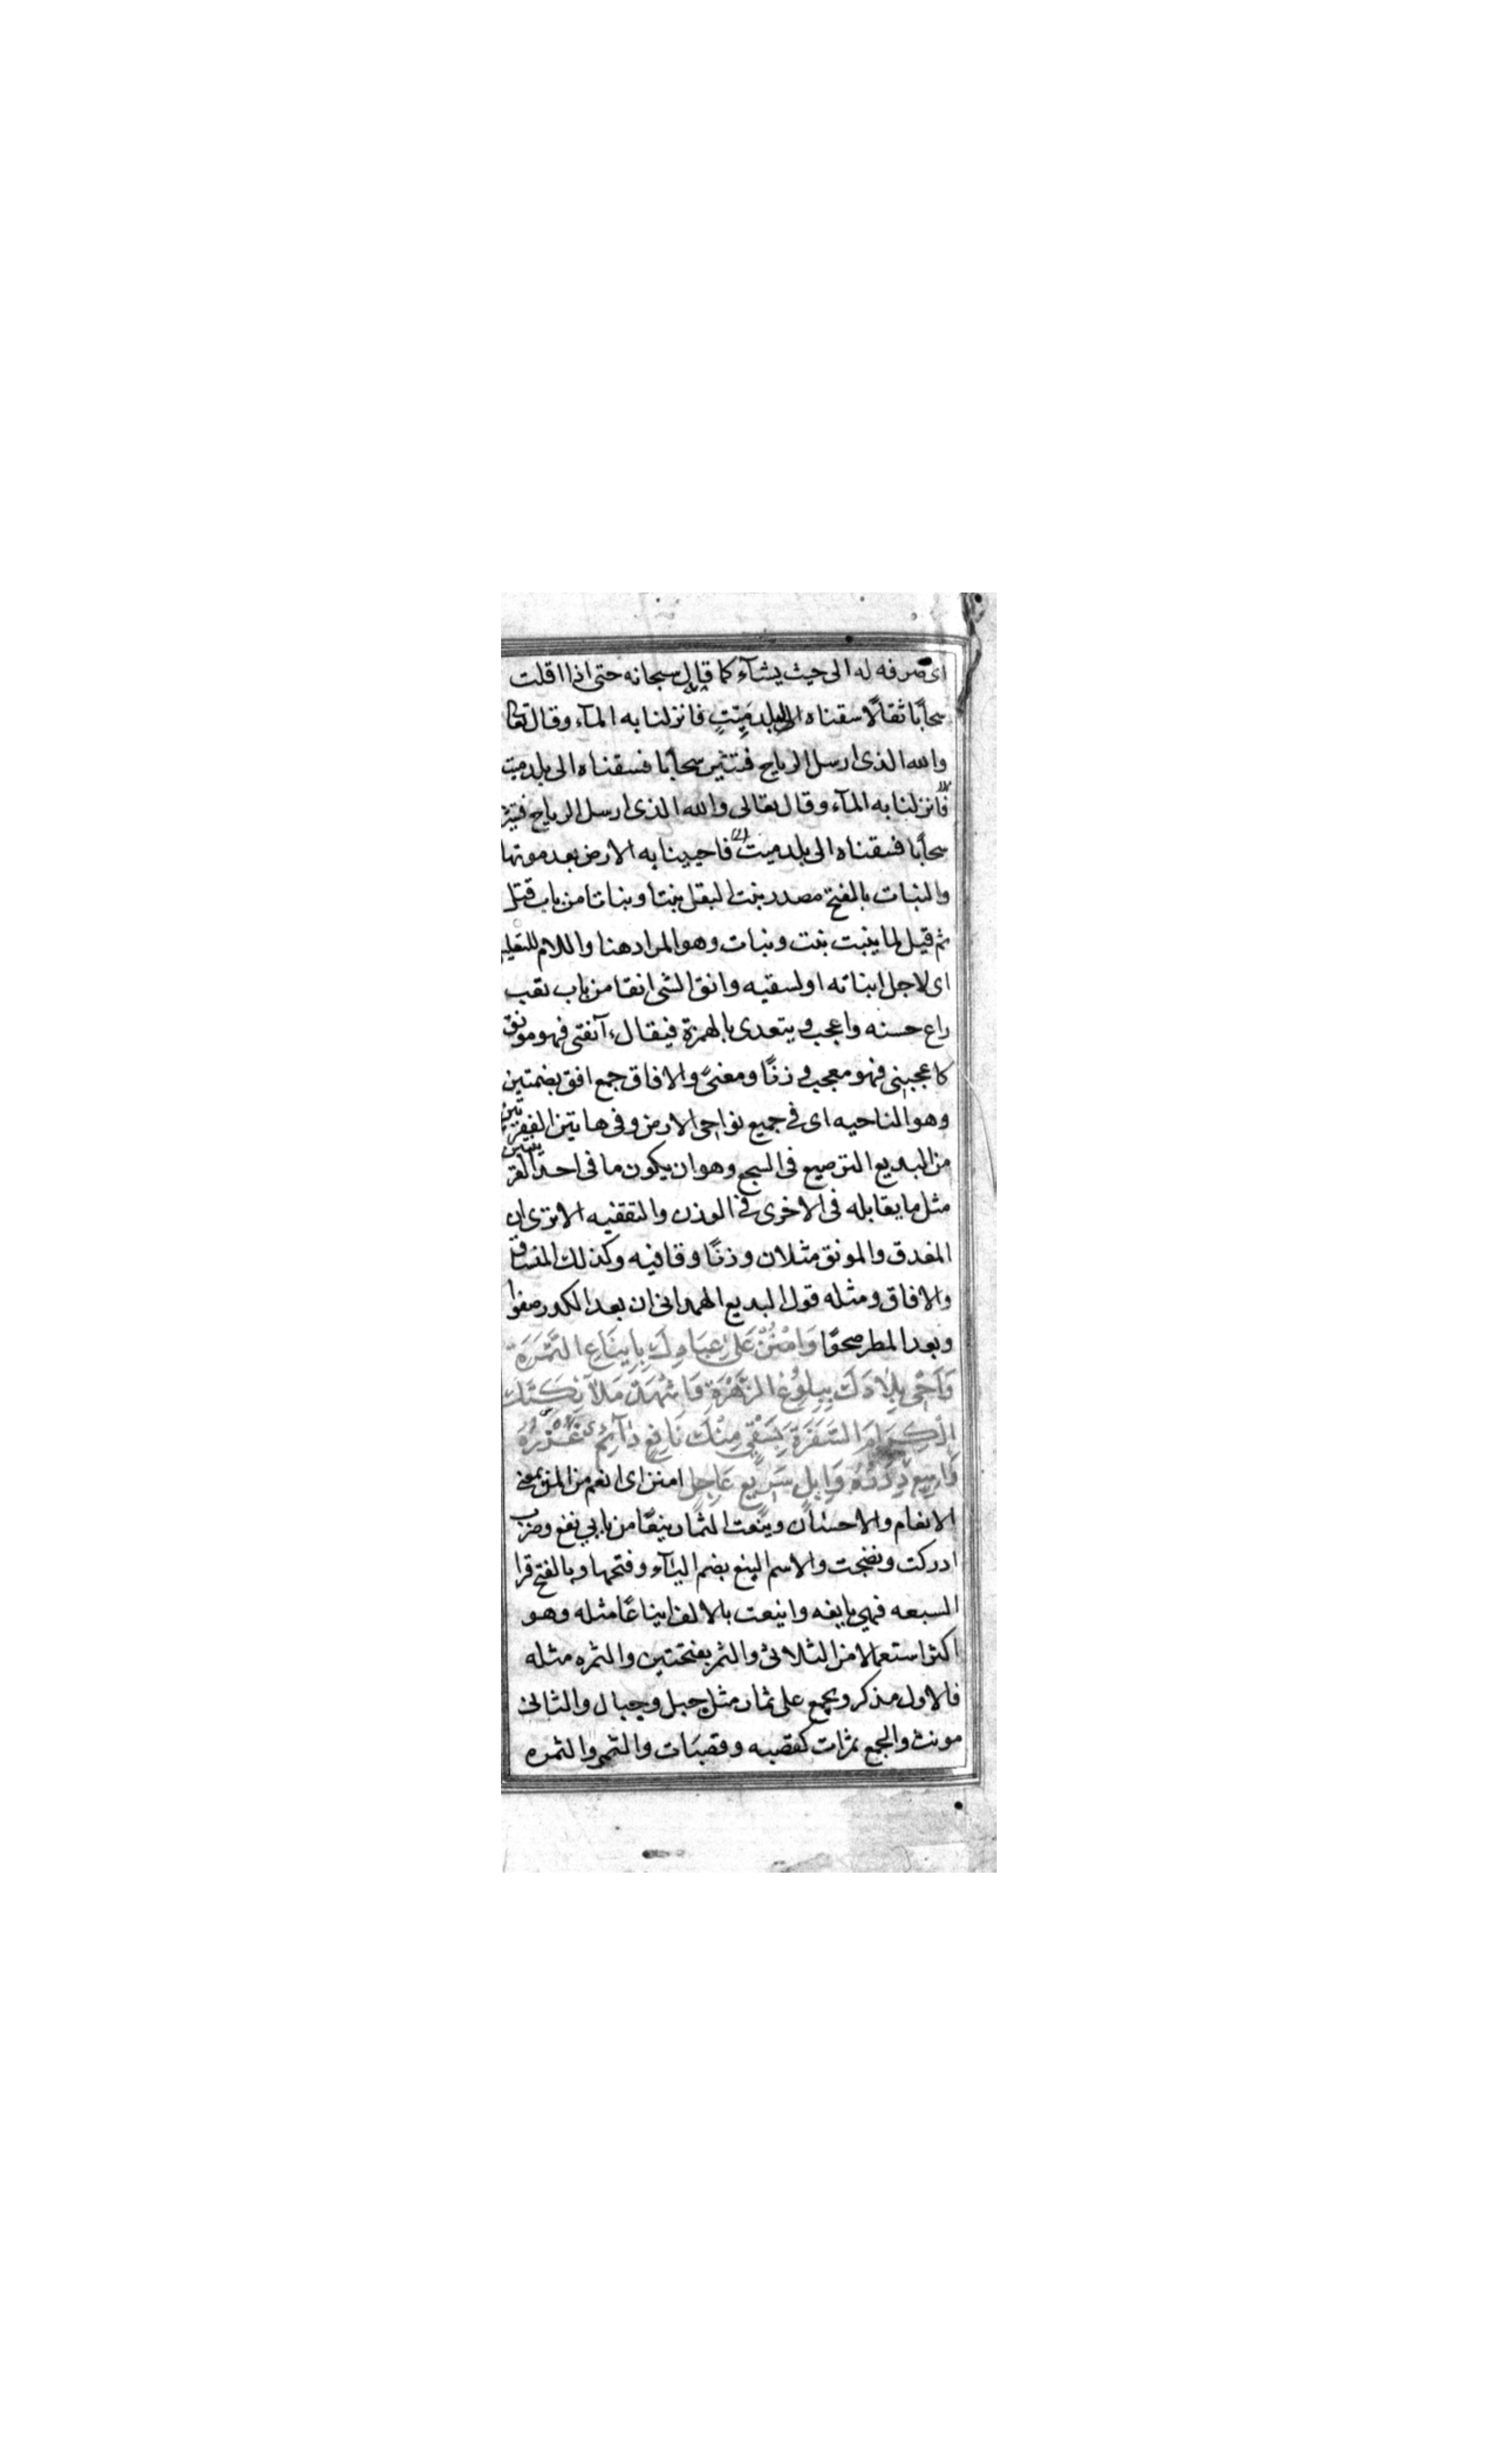 اى صرفه له الى حيث يشآء كما قال سبحانه حتى اذا اقلت
سحابًا ثقالًا سقناه الى بلد ميّتٍ فانزلنا به المآء وقال تعا
والله الذى ارسل الرياح فتثير سحابًا فسقناه الى بلد ميت
فانزلنا به المآء وقال تعالى والله الذى ارسل الرياح فتثير
سحابا فسقناه الى بلد ميت فاحيينا به الارض بعد موتها
والنبات بالفتح مصدر نبت البقل نبتا ونباتا من باب قتل
ثم قيل لما ينبت نبت ونبات وهو المراد هنا واللام للتعليل
اى لاجل انباته او لسقيه وانق الشى انقا من باب تعب
راع حسنه واعجب ويتعدى بالهمزة فيقال آنقنى فهو مونق
كاعجبنى فهو معجب وزنًا ومعنىً والافاق جمع افق بضمتين
وهو الناحيه اى في جميع نواحى الارض وفى هاتين الفقرتين
من البديع الترصيع فى السجع وهو ان يكون ما فى احد القرينتين
مثل ما يقابله فى الاخرى في الوزن والتقفيه الا ترى ان
المغدق والمونق مثلان وزنًا وقافيه وكذلك المنساق
والافاق ومثله قول البديع الهمدانى ان بعد الكدر صفوا
وبعد المطر صحوًا وَامْنُنْ عَلىٰ عِبَادِكَ بِاِينَاعِ الثَّمَرَةِ
وَاَحْىِ بِلَادَكَ بِبُلُوغِ الزَّهَرَةِ وَاَشْهِدْ مَلآئِكَتَكَ
الْكِرَامَ السَّفَرَةَ بِسَقْىٍ مِنْكَ نَافِعٍ دَآئِمٍ غُزْرُهُ
وَاسِعٍ دِرَرُهُ وَابِلٍ سَرِيعٍ عَاجِلٍ امنن اى انعم من المن بمعنى
الانعام والاحسان وينعت الثمار ينعًا من بابي نفع وضرب
ادركت ونضجت والاسم الينع بضم اليآء وفتحها وبالفتح قرا
السبعه فهي يانعه واينعت بالالف ايناعًا مثله وهو
اكثر استعمالا من الثلاثى والثمر بفتحتين والثمره مثله
فالاول مذكر ويجمع على ثمار مثل جبل وجبال والثانى
مونث والجمع ثمرات كقصبه وقصبات والثمر والثمره